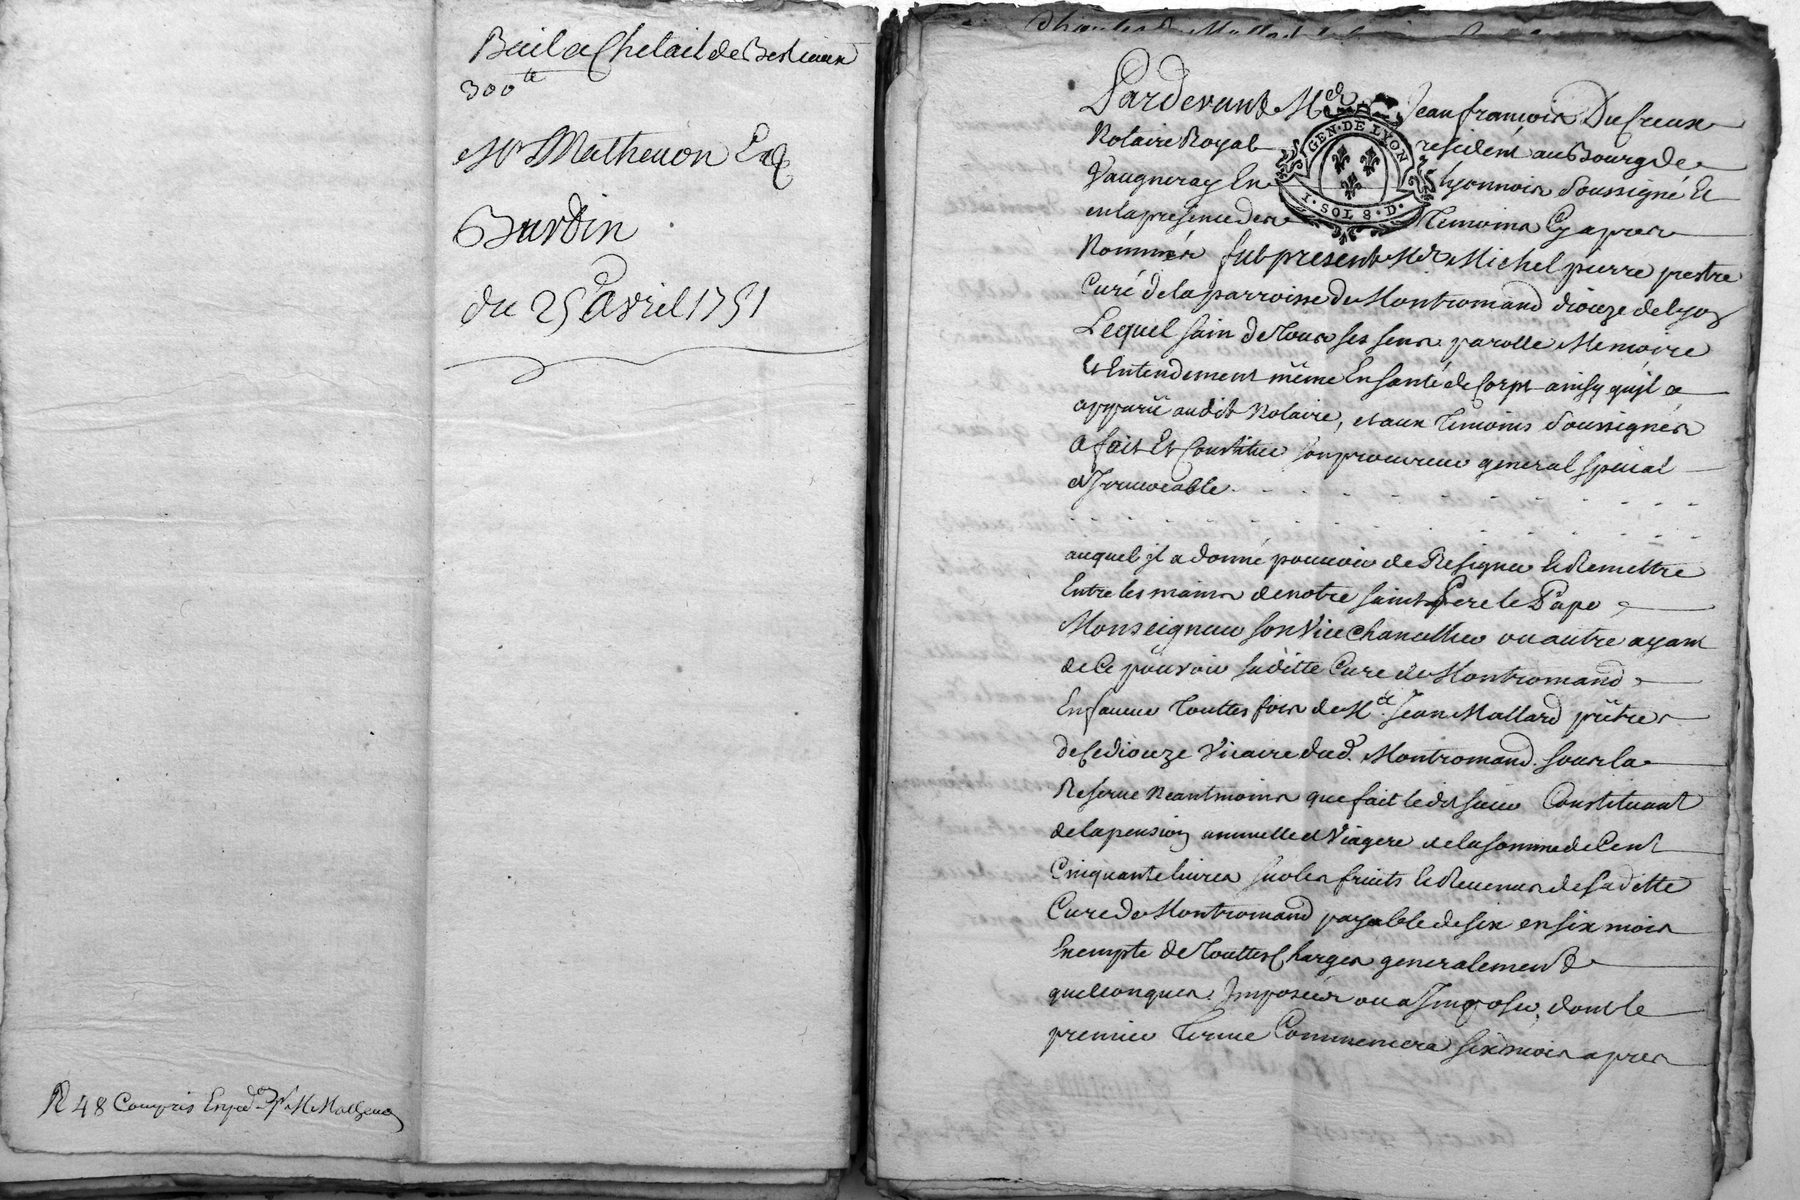 Bail a Chetail de Bestiaux
300ᵗᵗ
Mr Mathevon
Burdin
du 25 Avril 1751
R 48 Compris Exped.
Pardevant Me Jean françois Ducreux
Notaire Royal résident au Bourg de
Vaugneray En Lyonnois Soussigné Et
en la présence des Temoins Cy apres
Nommés fut present Mre Michel pierre prestre
Curé de la parroisse de Montromand dioceze de Lyon
Lequel sain de tous ses sens parolle Memoire
et Entendement même En santé de Corps ainsy qu'il a
apparü audit Notaire, et aux temoins Soussignés
A fait Et Constitue son procureur general special
et Irrevocable.
auquel jl a donné pouvoir de Resigner et Remettre
Entre les mains de notre saint Pere le Pape
Monseigneur son Vice chancellier ou autre ayant
de Ce pouvoir sa ditte Cure de Montromand
En faveur touttes fois de Mre Jean Mallard prêtre
de Ce dioceze Vicaire dud. Montromand sous la
Reserve Neantmoins que fait ledit sieur Constituant
de la pension annuelle et Viagere de la somme de Cent
Cinquante livres sur les fruits et Revenus de sa dette
Cure de Montromand payable de six en six mois
Exempte de touttes Charges generalement
quelconques Imposées ou a Imposer, dont le
premier terme Commencera six mois apres
GEN·DE LYON
1·SOL 8·D·